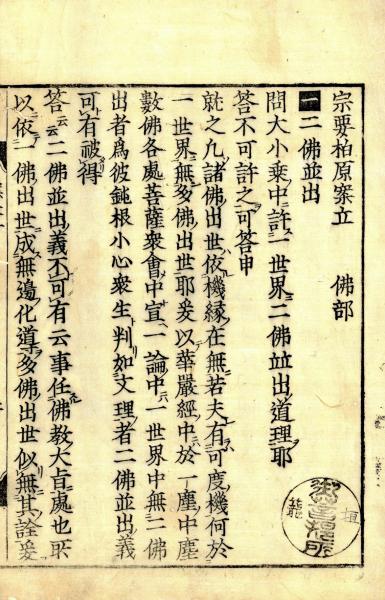 宗要柏原案立　佛部
一二佛並出
問大小乘中許一世界二佛並出道理耶
答不可許之可答申
就之凡諸佛出世依機縁在無若夫有可度機何於
一世界無多佛出世耶爰以華嚴經中於一塵中塵
數佛各處菩薩衆會中宣一論中一世界中無二佛
出者爲彼鈍根小心衆生判如文理者二佛並出義
可有被得
答云云二佛並出義不可有云事任佛教大旨處也
以依一佛出世成無邊化導多佛出世似無其詮爰